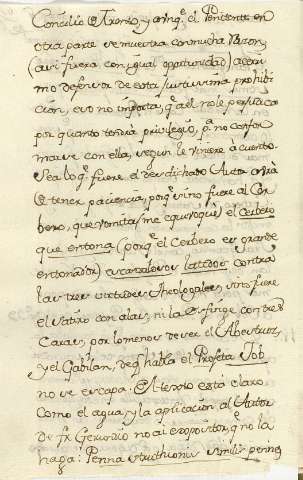 Concilio de Trento, y aunq.e el Penitente en
otra parte se muestra con mucha razon,
(asi fuera con igual oportunidad) acerri-
mo defensor de esta justissima prohibi-
cion, eso no importa, q.e a el no le perjudica
por quanto tendrà privilegio, p.a no confor-
marse con ella, segun le viniere à cuento.
Sea lo q.e fuere, el desdichado Autor avrà
de tener paciencia, porq.e sino fuere al Cer-
bero, que vomita (me equivoquè) el Cerbero
que entona (porq.e el Cerbero es grande
entonador) escandalosos latidos contra
las tres virtudes Theologales, sino fuere
el satiro con alas, ni la esfinge con tres
Caras, por lo menos de ser el Abestruz,
y el Gabilan, de q.e habla el Profeta Job
no se escapa: el texto està claro
como el agua, y la aplicacion al Autor
de fr. Gerundio no ai expositor, q.e no la
haga: Penna struthionis similis pennis